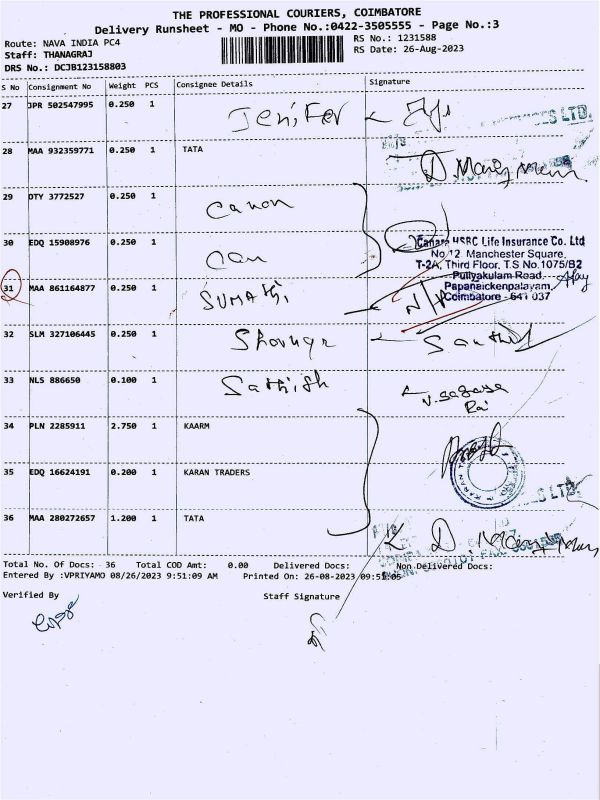 THE PROFESSIONAL COURIERS, COIMBATORE
Delivery Runsheet - MO - Phone No.:0422-3505555 - Page No.:3
Route: NAVA INDIA PC4
RS No.: 1231588
Staff: THANAGRAJ
RS Date: 26-Aug-2023
DRS No.: DCJB123158803
S No Consignment No Weight PCS Consignee Details Signature
27 JPR 502547995 0.250 1 Jenifer
28 MAA 932359771 0.250 1 TATA
29 OTY 3772527 0.250 1 Canon
30 EDQ 15908976 0.250 1 Can
Canara HSBC Life Insurance Co. Ltd
No.12, Manchester Square,
T-2A, Third Floor, T.S No.1075/B2
Puliyakulam Road,
Papanaickenpalayam,
Coimbatore - 641 037
31 MAA 861164877 0.250 1
32 SLM 327106445 0.250 1
33 NLS 886650 0.100 1 Sathish
34 PLN 2285911 2.750 1 KAARM
35 EDQ 16624191 0.200 1 KARAN TRADERS
36 MAA 280272657 1.200 1 TATA
Total No. Of Docs: 36 Total COD Amt: 0.00 Delivered Docs: Non Delivered Docs:
Entered By :VPRIYAMO 08/26/2023 9:51:09 AM Printed On: 26-08-2023 09:51:05
Verified By Staff Signature